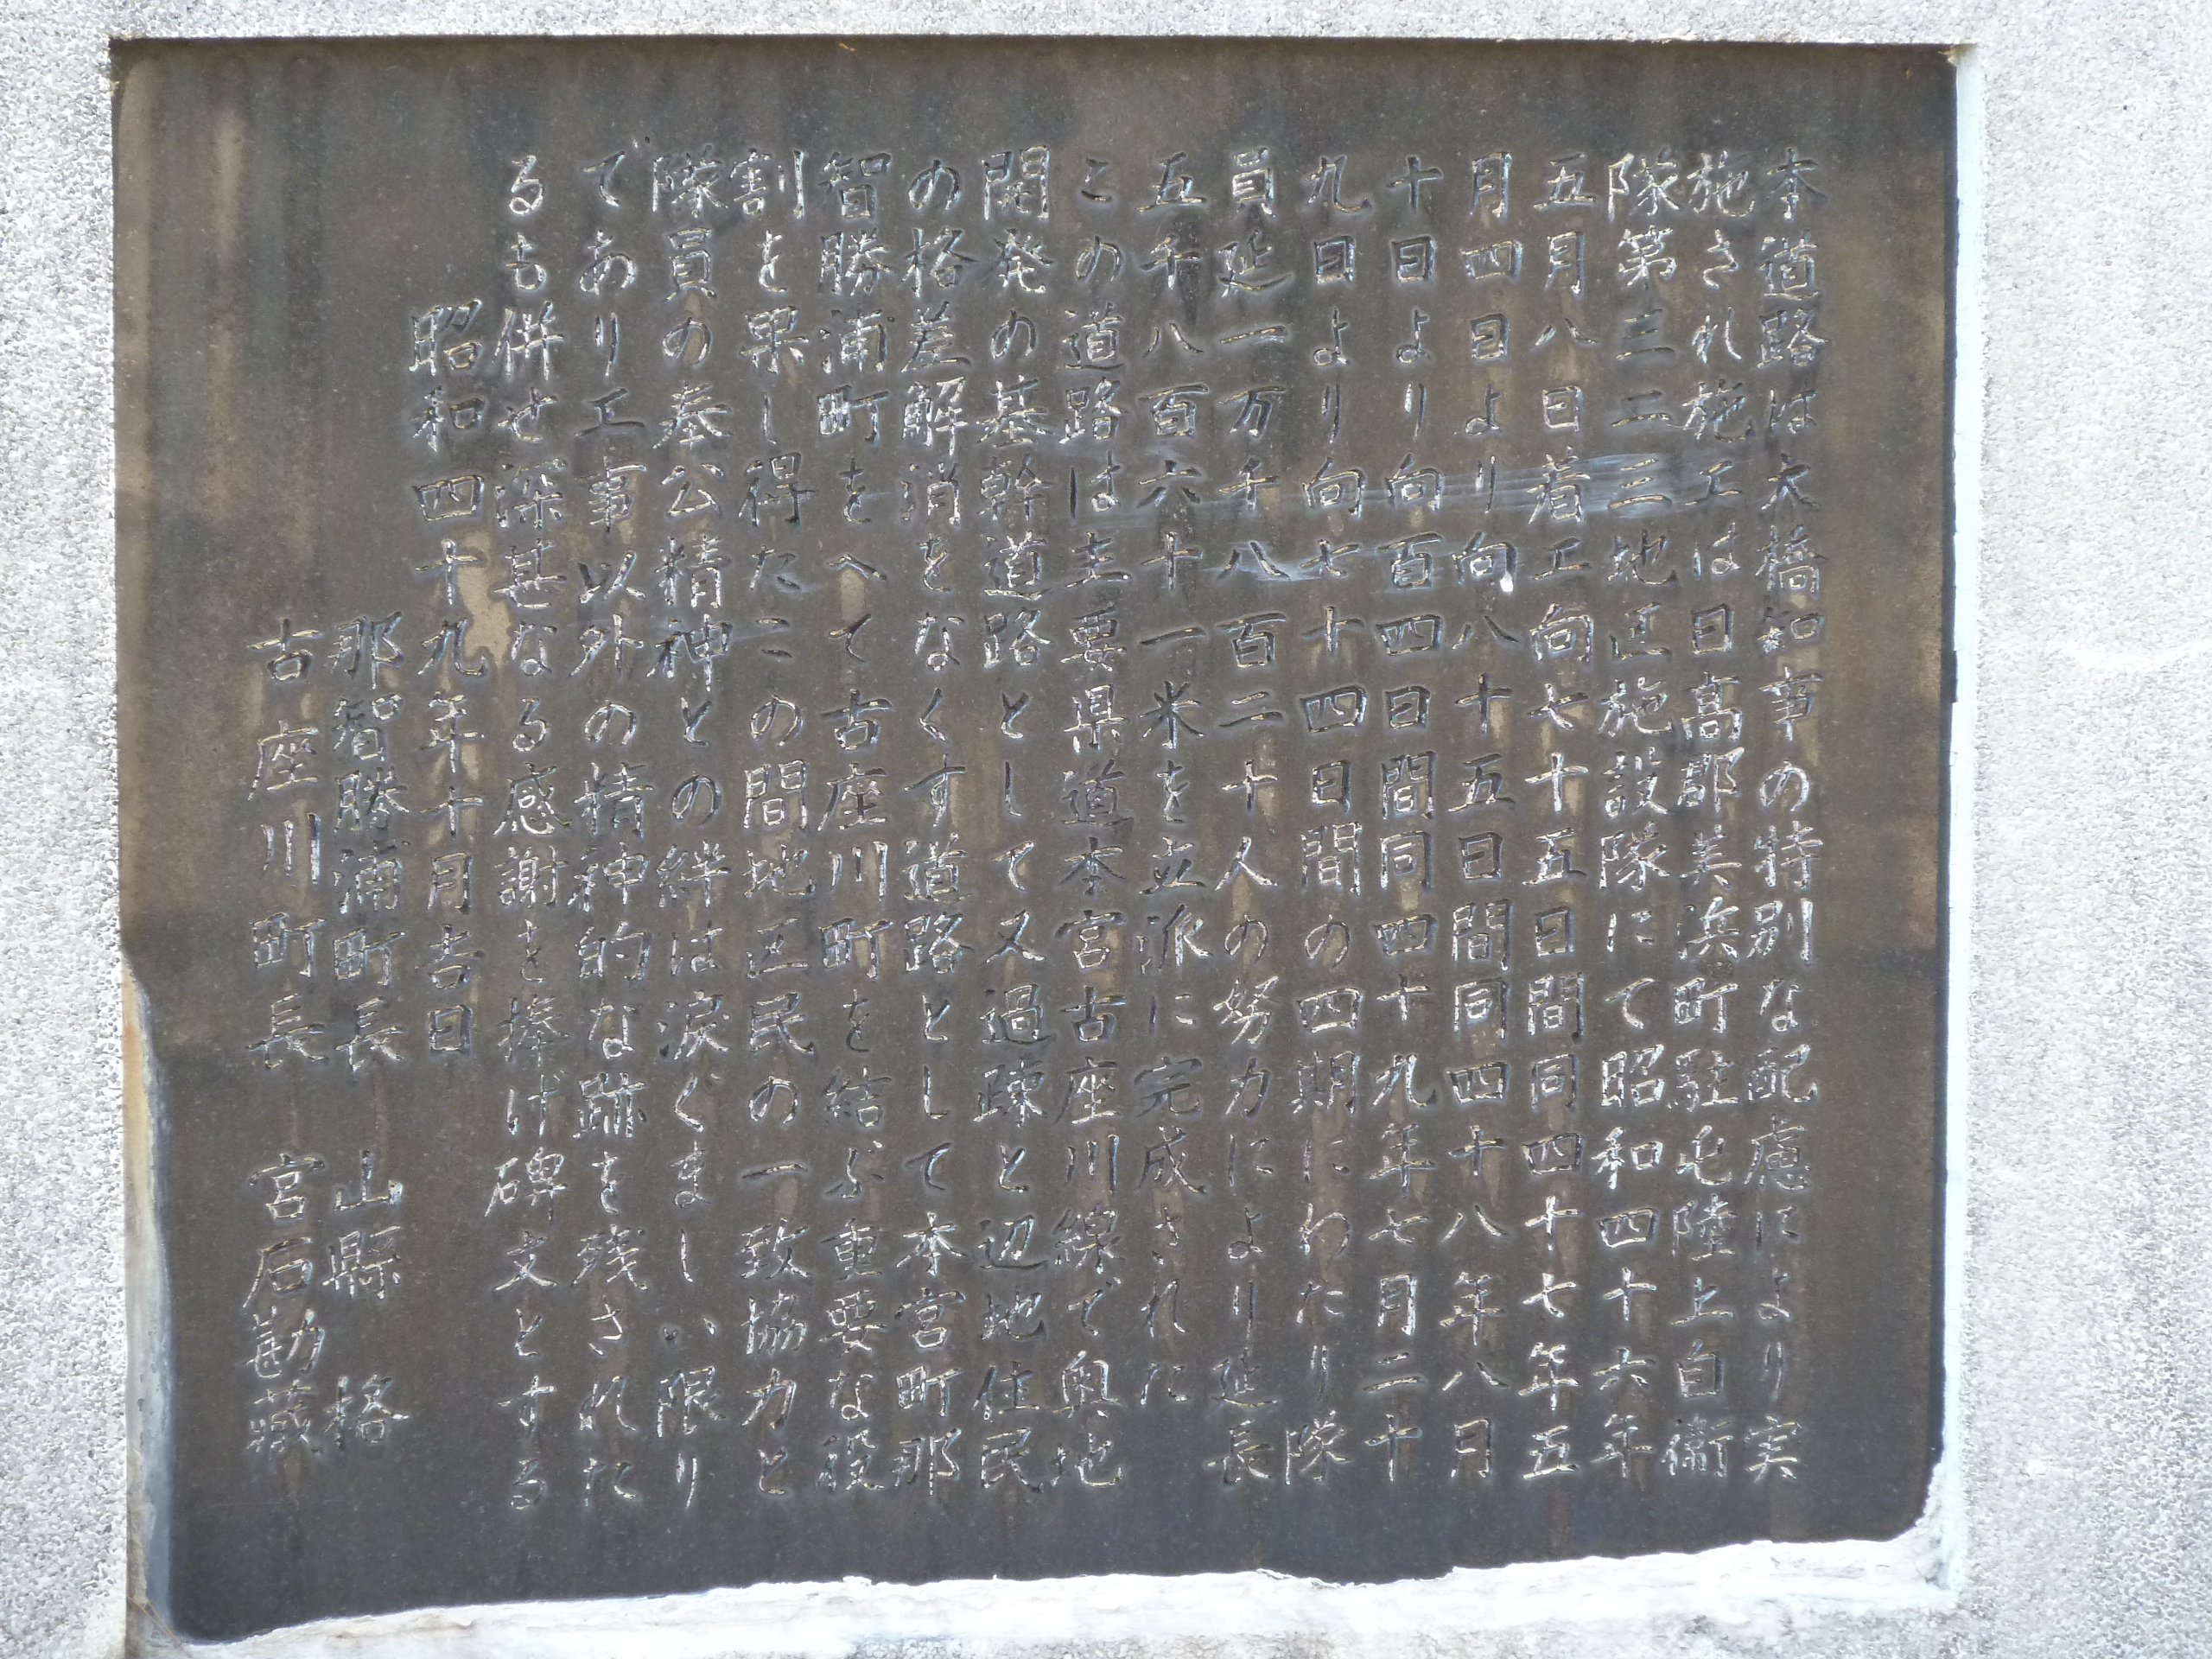 本道路は大橋知事の特別な配慮により実
施され施工は日高郡美浜町駐屯陸上自衛
隊第三二三地区施設隊にて昭和四十六年
五月八日着工向七十五日間同四十七年五
月四日より向八十五日間同四十八年八月
十日より向百四日間同四十九年七月二十
九日より向七十四日間の四期にわたり隊
員延一万千八百二十人の努力により延長
五千八百六十一米を立派に完成された
この道路は主要県道本宮古座川線で奥地
開発の基幹道路として又過疎と辺地住民
の格差解消をなくす道路として本宮町那
智勝浦町をへて古座川町を結ぶ重要な役
割を果し得たこの間地区民の一致協力と
隊員の奉公精神との絆は涙ぐましい限り
であり工事以外の精神的な跡を残された
るも併せ深甚なる感謝を捧げ碑文とする
昭和四十九年十月吉日
那智勝浦町長 山縣 格
古座川町長 宮石勘蔵